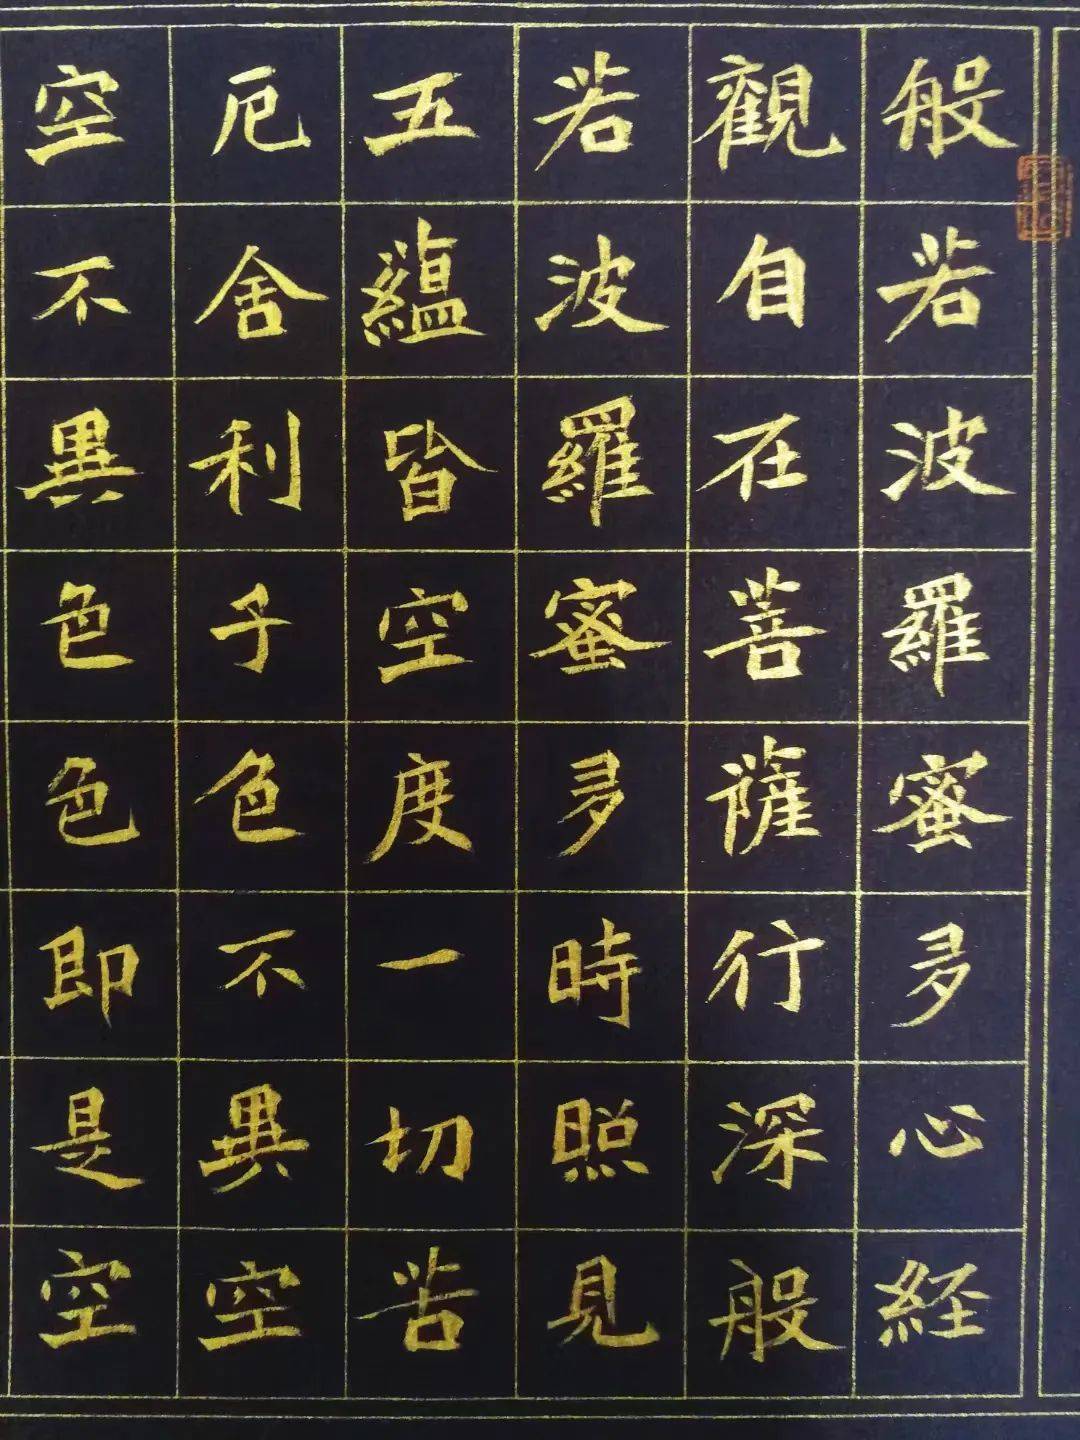 般若波羅蜜多心経
觀自在菩薩行深般
若波羅蜜多時照見
五蘊皆空度一切苦
厄舍利子色不異空
空不異色色即是空